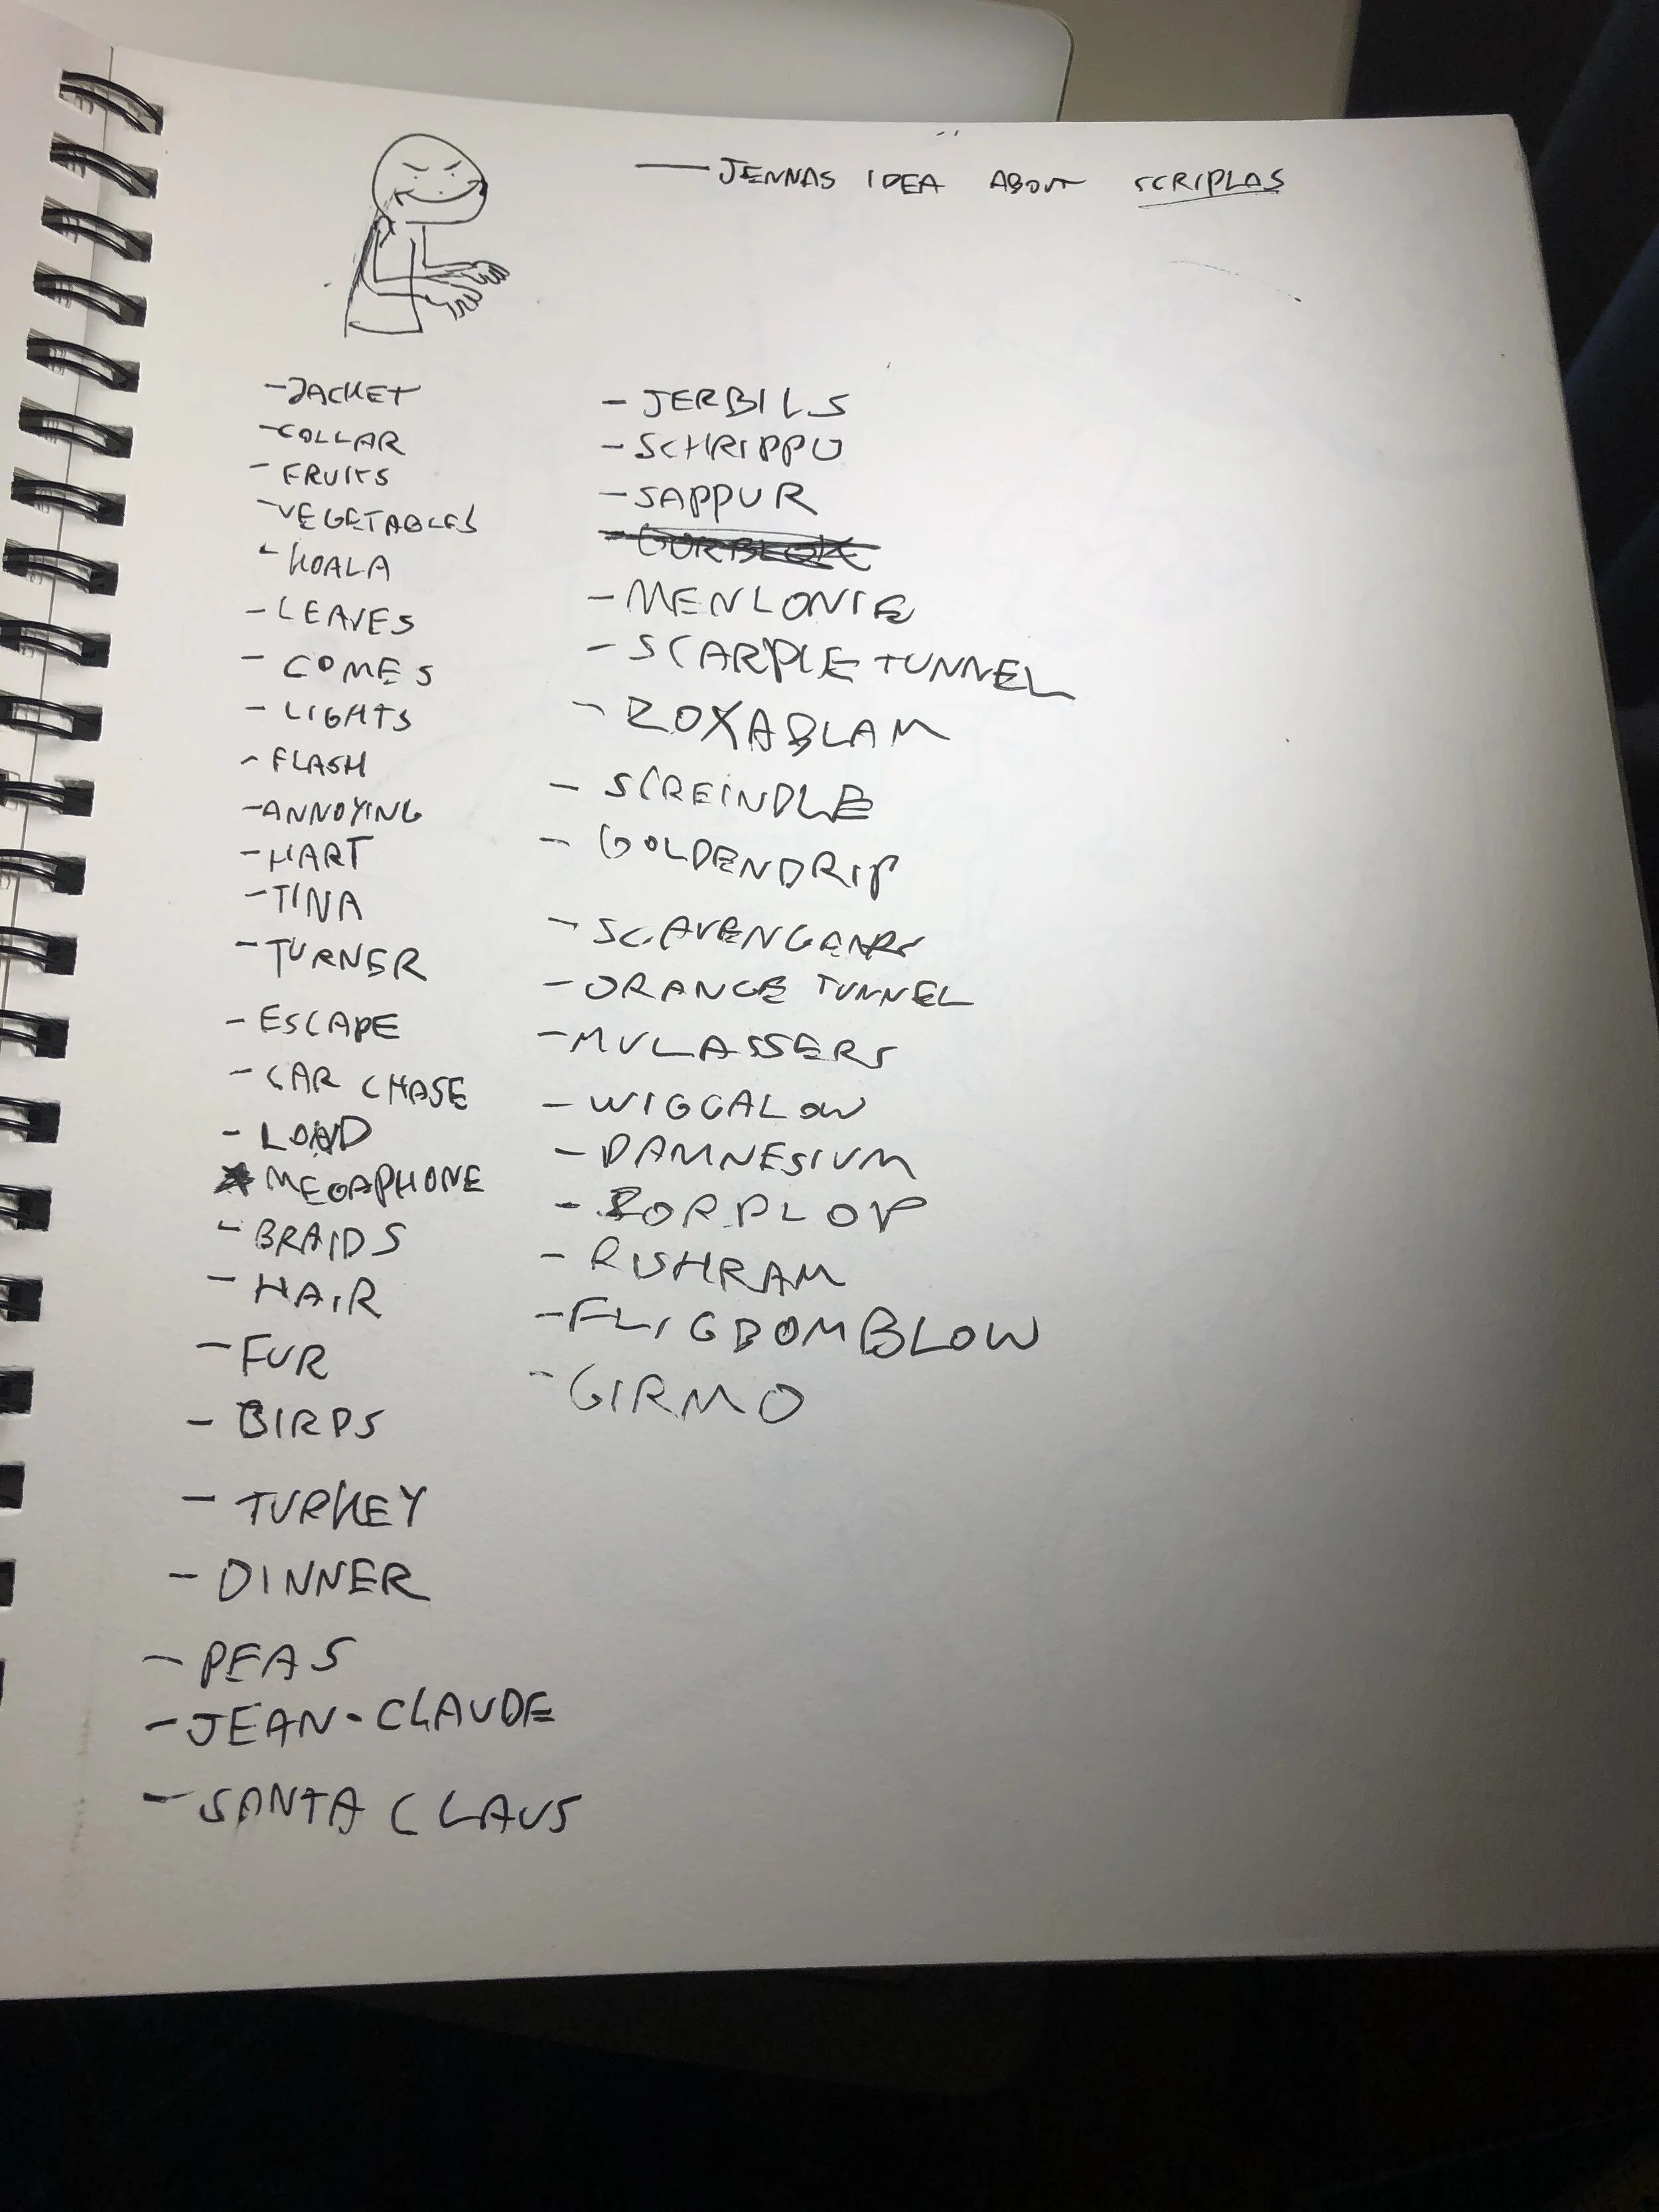 — JENNAS IDEA ABOUT SCRIPLAS
- JACKET
- COLLAR
- FRUITS
- VEGETABLES
- KOALA
- LEAVES
- COMES
- LIGHTS
- FLASH
- ANNOYING
- HART
- TINA
- TURNER
- ESCAPE
- CAR CHASE
- LOAD
★ MEGAPHONE
- BRAIDS
- HAIR
- FUR
- BIRDS
- TURKEY
- DINNER
- PEAS
- JEAN-CLAUDE
- SANTA CLAUS
- JERBILS
- SCHRIPPU
- SAPPUR
- MENLONIE
- SCARPLE TUNNEL
- ZOXABLAM
- SCREINDLE
- GOLDENDRIP
- ORANGE TUNNEL
- MULASSERS
- WIGGALOW
- DAMNESIUM
- RUSHRAM
- FLIGBOMBLOW
- GIRMO